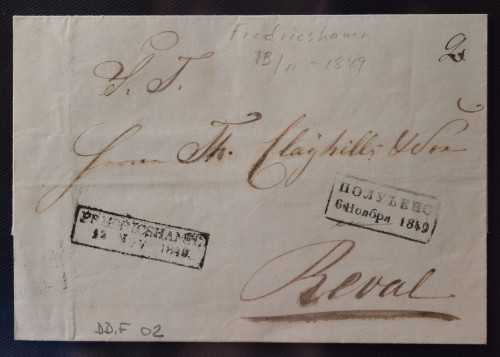 Fredricshamn
13/11 - 1849
2
S. T.
Herren Th. Clayhills & Son
FREDRICSHAMN
13 NOV. 1849.
ПОЛУЧЕНО
6 Ноября 1849
Reval
DD.F 02